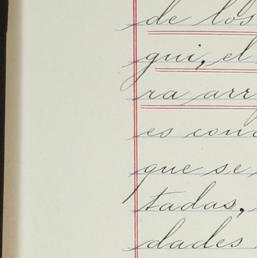 de los
gui, el
ra arr
es con
que se
tadas,
dades